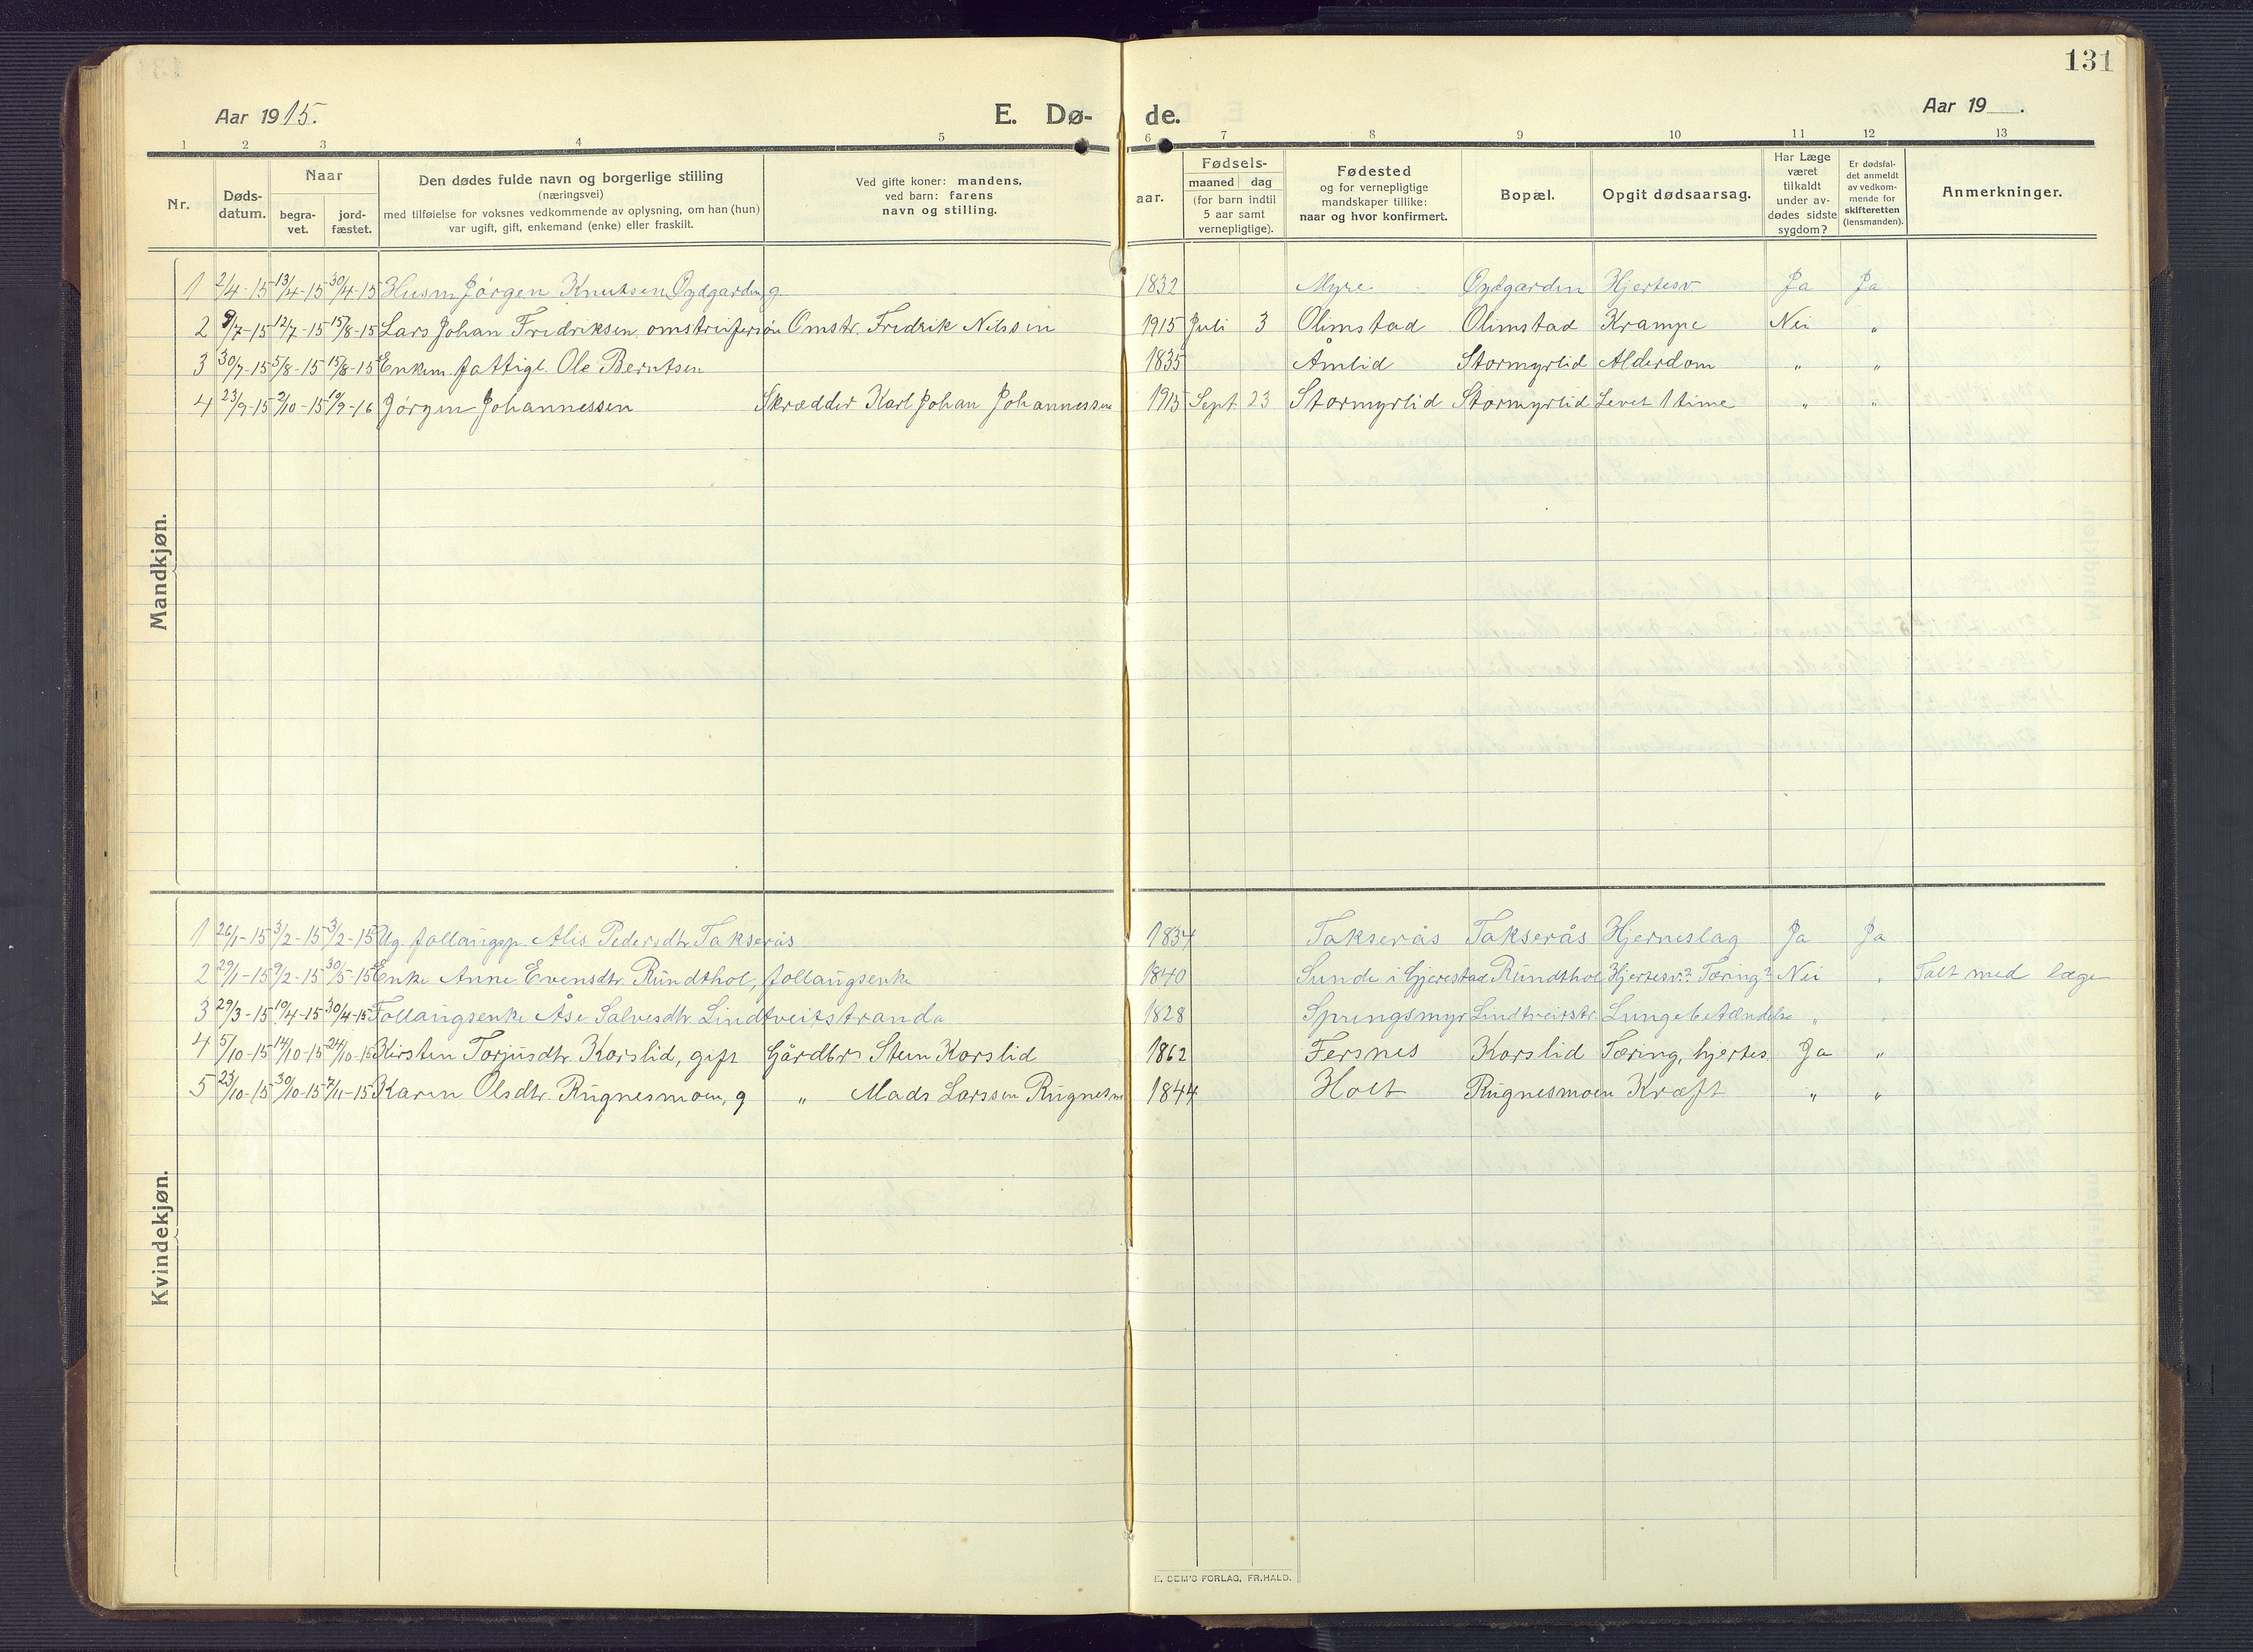 131
Aar 1915. E. Dø- de. Aar 19___.
1 2 3 4 5 6 7 8 9 10 11 12 13
Nr. Døds-datum. Naar begra-vet. jord-fæstet. Den dødes fulde navn og borgerlige stilling (næringsvei) med tilføielse for voksnes vedkommende av oplysning, om han (hun) var ugift, gift, enkemand (enke) eller fraskilt. Ved gifte koner: mandens, ved barn: farens navn og stilling. aar. Fødsels- maaned dag (for barn indtil 5 aar samt vernepligtige). Fødested og for vernepligtige mandskaper tillike: naar og hvor konfirmert. Bopæl. Opgit dødsaarsag. Har Læge været tilkaldt under av-dødes sidste sygdom? Er dødsfal-det anmeldt av vedkom-mende for skifteretten (lensmanden). Anmerkninger.
Mandkjøn.
1 2/4-15 13/4-15 30/4-15 Husm Jørgen Knutsen Øydgarden, g. 1832 Myre Øydgarden Hjertesv Ja Ja
2 9/7-15 12/7-15 15/8-15 Lars Johan Fredriksen, omstreifersøn Omstr. Fredrik Nilssen 1915 Juli 3 Olimstad Olimstad Krampe Nei "
3 30/7-15 5/8-15 15/8-15 Enkem. fattigl. Ole Berntsen 1835 Åmlid Stormyrlid Alderdom " "
4 23/9-15 2/10-15 10/9-16 Jørgen Johannessen Skrædder Karl Johan Johannessen 1915 Sept. 23 Stormyrlid Stormyrlid Levet 1 time " "
Kvindekjøn.
1 26/1-15 3/2-15 3/2-15 Ug. follaugsp. Alis Pedersdtr. Takserås 1834 Takserås Takserås Hjerneslag Ja Ja
2 29/1-15 9/2-15 30/5-15 Enke Anne Evensdtr. Rundthol, follaugsenke 1840 Sunde i Gjerestad Rundthol Hjertesv? Tæring? Nei " Talt med læge
3 29/3-15 10/4-15 30/4-15 Follaugsenke Åse Salvesdtr. Lindtveitstranda 1828 Springsmyr Lindtveitstr. Lungebetændelse " "
4 5/10-15 14/10-15 24/10-15 Kirsten Torjusdtr. Korslid, gift Gårdbr. Stein Korslid 1862 Fersnes Korslid Tæring, hjertes. Ja "
5 23/10-15 30/10-15 7/11-15 Karen Olsdtr. Rugnesmoen, g " Mads Larssen Rugnesm 1844 Holt Rugnesmoen Kræft " "
E. SEM'S FORLAG, FR.HALD.